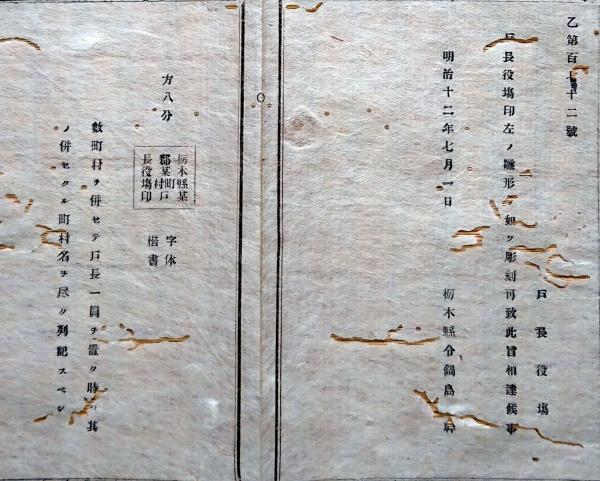 乙第百七十二號
戸長役塲
戸長役塲印左ノ雛形ノ如ク彫刻可致此旨相達候事
明治十二年七月一日
栃木縣令鍋島幹
方八分
栃木縣某
郡某町
村戸
長役塲印
字体
楷書
數町村ヲ併セテ戸長一員ヲ置ク時ハ其
ノ併セタル町村名ヲ尽ク列記スベシ